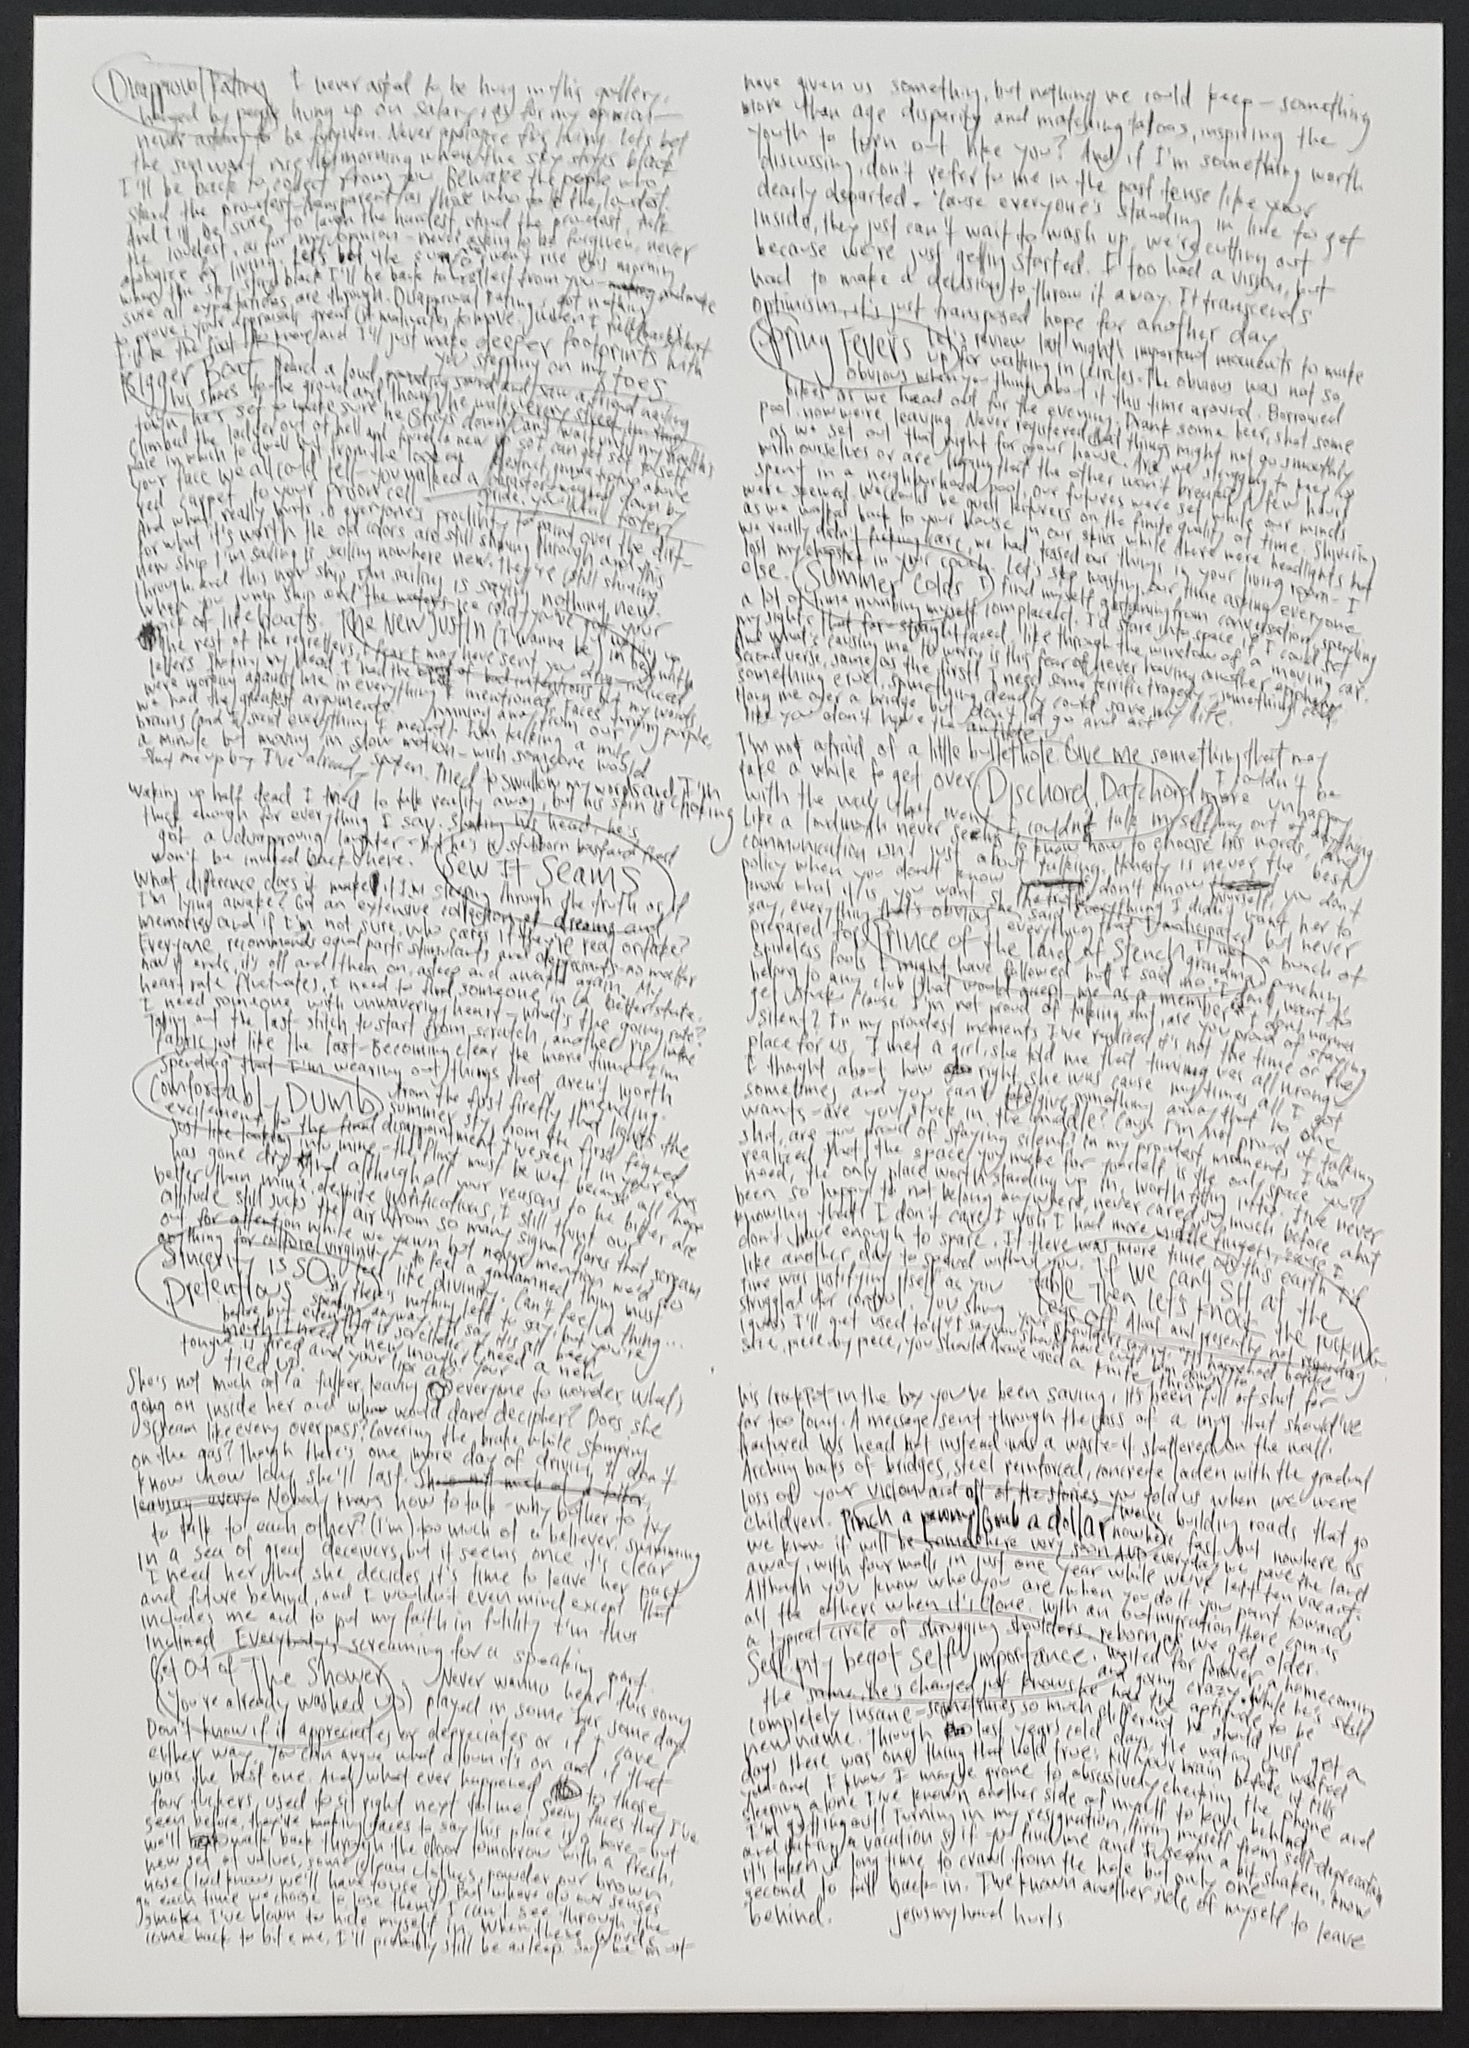 Disapproval Rating I never asked to be hung in this gallery,
by people hung up on for my opinion—
never asking to be forgiven. Never apologize for living. Let's bet
the sun won't rise this morning when the sky stays black
I'll be back to collect from you Beware the people who
stand the proudest—transparent as those who talk the loudest.
And I'll be sure to laugh the hardest, stand the proudest, talk
the loudest, as for my opinion—never going to be forgiven, never
apologize for living. Let's bet the sun won't rise this morning
when the sky stays black I'll be back to collect from you and make
sure all expectations are through. Disapproval Rating, got nothing
to prove; your appraisal's great (it motivates to move.)
I'll be the first to know and I'll just make deeper footprints with
you stepping on my toes
Bigger Boat Heard a loud, pounding sound and saw a
his shoes to the ground and though he walks every street in this
town he's set to make sure he stays down
Climbed the ladder out of hell and found a new
but from the look on
your face we all could tell—you walked a
red carpet to your prison cell weighed down by
And what really hurts is everyone's forming over the dirt—
for what it's worth the old colors are still showing through and this
new ship I'm sailing is sailing nowhere new. they're still showing
through and this new ship I'm sailing is saying nothing new.
when you jump ship and the water's ice cold you've got your
of lifeboats. The New Justin (I wanna be) in bed with
the rest of the regretters. I fear I may have sent you
letters. Shaking my head I had the best of intentions but my words
were working against me in everything I mentioned. Faces turning purple,
we had the greatest arguments. Running away from our
brains (and I said everything I meant). I'm talking a mile
a minute but moving in slow motion—wish someone would
shut me up but I've already spoken. I need to swallow my words and I'm
choking
Waking up half dead I tried to talk reality away, but his skin is
thick enough for everything I say. Shaking his head, he's
got a disapproving laughter— he's a stubborn bastard
won't be invited back here. Sew It Seams
What difference does it make if I'm sleeping through the truth or if
I'm lying awake? Got an extensive collection of dreams and
memories and if I'm not sure, who cares if they're real or fake?
Everyone recommends equal parts stimulants and depressants—no matter
how it ends, it's off and then on, asleep and awake again. My
heart rate fluctuates, I need to find someone in a better state.
I need someone with unwavering heart—what's the going rate?
Taking out the last stitch to start from scratch, another rip in the
fabric just like the last—Becoming clear the more time I'm
spending that I'm wearing out things that aren't worth
mending.
Comfortably Dumb from the first firefly that lights the
summer sky from the first feigned
excitement to the final disappointment I've seen it in your eyes
just like looking into mine—the flint must be wet because all hope
has gone dry. And although all your reasons to be bitter are
better than mine, despite justifications, I still think our
attitude still sucks the air from so many signal flares that scream
out for attention while we yawn but never mention we'd do
anything for cultural virginity. To feel a goddamned thing must
Sincerity is SO feel like divinity. Can't feel a thing...
Pretentious so if there's nothing left to say, but you're
speaking anyway,
tongue is tired and your lips are
tied up. I need a new mouth I need a new
She's not much of a talker, leaving everyone to wonder what's
going on inside her and who would dare decipher? Does she
scream like every overpass? Covering the brake while stomping
on the gas? Though there's one more day of driving, I don't
know how long she'll last. She's not much of a talker,
leaving every Nobody knows how to talk—why bother to try
to talk to each other? (I'm) too much of a believer, swimming
in a sea of great deceivers, but it seems once it's clear
I need her that she decides it's time to leave her past
and future behind, and I wouldn't even mind except that
includes me and to put my faith in futility I'm thus
inclined Everybody's screaming for a speaking part.
Get Out of The Shower Never wanna hear this song
(You're already washed up) played in some bar some day.
Don't know if it appreciates or depreciates or if I care
either way. You can argue what album it's on and if that
was the best one. And what ever happened to those
four fuckers, used to sit right next to me. Seeing faces that I've
seen before, they're making faces to say this place is a bore—but
we'll walk back through the door tomorrow with a fresh,
new set of values, some clean clothes, powder our brown
nose (lord knows we'll have to use it). But where do our senses
go each time we choose to lose them? I can't see through the
smoke I've blown to hide myself in. When these words
come back to bite me, I'll probably still be asleep.
have given us something, but nothing we could keep—something
more than age disparity and matching tattoos, inspiring the
youth to turn out like you? And if I'm something worth
discussing, don't refer to me in the past tense like your
dearly departed. 'Cause everyone's standing in line to get
inside, they just can't wait to wash up, we're cutting out
because we're just getting started. I too had a vision, but
had to make a decision to throw it away. It transcends
optimism, it's just transposed hope for another day
Spring Fevers Let's review last night's important moments to make
up for walking in circles. The obvious was not so
obvious when you think about it this time around. Borrowed
bikes as we head out for the evening. Drank some beer, shot some
pool, now we're leaving. Never registered that things might not go smoothly
as we set out that night for your house. Are we struggling to keep up
with ourselves or are hoping that the other won't break? A few hours
spent in a neighborhood pool, our futures were set while our minds
were skewed. We could be guest lecturers on the finite quality of time. Shivering
as we walked back to your house in our skivs while there were headlights but
we really didn't fucking care, we had tossed our things in your living room—I
lost my in your couch. Let's stop wasting our time asking everyone
else. Summer Colds I find myself gathering from conversation, spending
a lot of time numbing myself complacent. I'd stare into space if I could get
my sights that far—straight faced, like through the window of a moving car.
And what's causing me to worry is this fear of never having another
Second verse, same as the first! I need some terrific tragedy—something
something cruel, something deadly could save my life.
Hang me over a bridge but don't let go and act
like you don't have the antidote.
I'm not afraid of a little bullethole Give me something that may
take a while to get over Dischord, Datchord I couldn't be more unhappy
with the way that went I couldn't talk myself way out of anything
Like a loudmouth never seems to know how to choose his words, and
communication isn't just about talking. Honesty is never the best
policy when you don't know the truth, don't know yourself, you don't
know what it is you want She said everything I didn't want her to
say, everything that's obvious, everything that I anticipated but never
prepared for Prince of the Land of Stench If not a bunch of
spineless fools I might have followed but I said no, I don't want to
belong to any club that would accept me as a member
get stuck 'cause I'm not proud of talking shit, are you proud of staying
silent? In my proudest moments I've realized it's not the time or the
place for us. I met a girl, she told me that timing was all wrong—
I thought about how right she was cause my times all I got
sometimes and you can't give something away that no one
wants—are you stuck in the middle? Cause I'm not proud of talking
shit, are you proud of staying silent? In my proudest moments I've
realized that the space you make for yourself is the only space you'll
need, the only place worth standing up in, worth I've never
been so happy to not belong anywhere, never cared so much before about
knowing that I don't care. I wish I had more middle fingers, 'cause I
don't have enough to spare. If there was more time on this earth I'd
like another day to spend without you. If we can't sit at the
time was justifying itself as you table then let's knock the fucking
struggled for control. You shrug legs off Aloof and presently not regarding
I guess I'll get used to it I say your shoulders
size, piece by piece, you should have used a knife
his crackpot in the box you've been saving, it's been full of shit for
far too long. A message sent through the glass of a that should've
fractured his head but instead was a waste—it shattered on the wall.
Arching backs of bridges, steel reinforced, concrete laden with the gradual
loss of your vision and all of the stories you told us when we were
children. Pinch a penny, Grab a dollar We're building roads that go
nowhere fast, but nowhere as
we know it will be somewhere very soon And everyday we pave the land
away, with four walls in just one year while we've left ten vacant.
Although you know who you are when you do it you point towards
all the others when it's done. With an outmigration there comes
a typical circle of shrugging shoulders, reborn as we get older.
Self pity begot self importance. Waited for forever, a homecoming
the same, he's changed, just knows he and going crazy, while he's still
completely insane—sometimes so much different he has the aptitude to be
new name. Through last years cold days, the waking up wasted
days there was one thing that held true: kill your brain before it kills
you—and I know I maybe prone to obsessively checking the phone and
sleeping alone I've known another side of myself to leave behind,
I'm getting out! Turning in my resignation, firing myself from self-deprecation
and taking a vacation so if you find me and I seem a bit shaken, know
it's taken a long time to crawl from the hole but only one
second to fall back in. I've known another side of myself to leave
behind. jesus my hand hurts